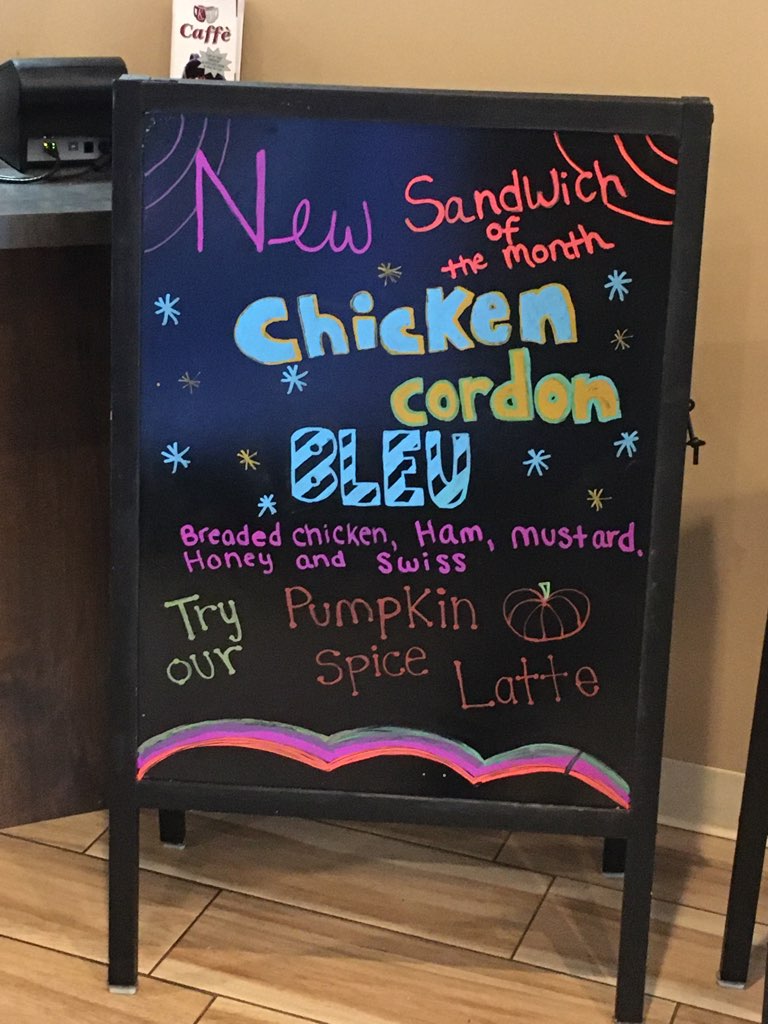 Caffè
New Sandwich
of
the Month
Chicken
cordon
BLEU
Breaded chicken, Ham, mustard,
Honey and swiss
Try our
Pumpkin
Spice
Latte